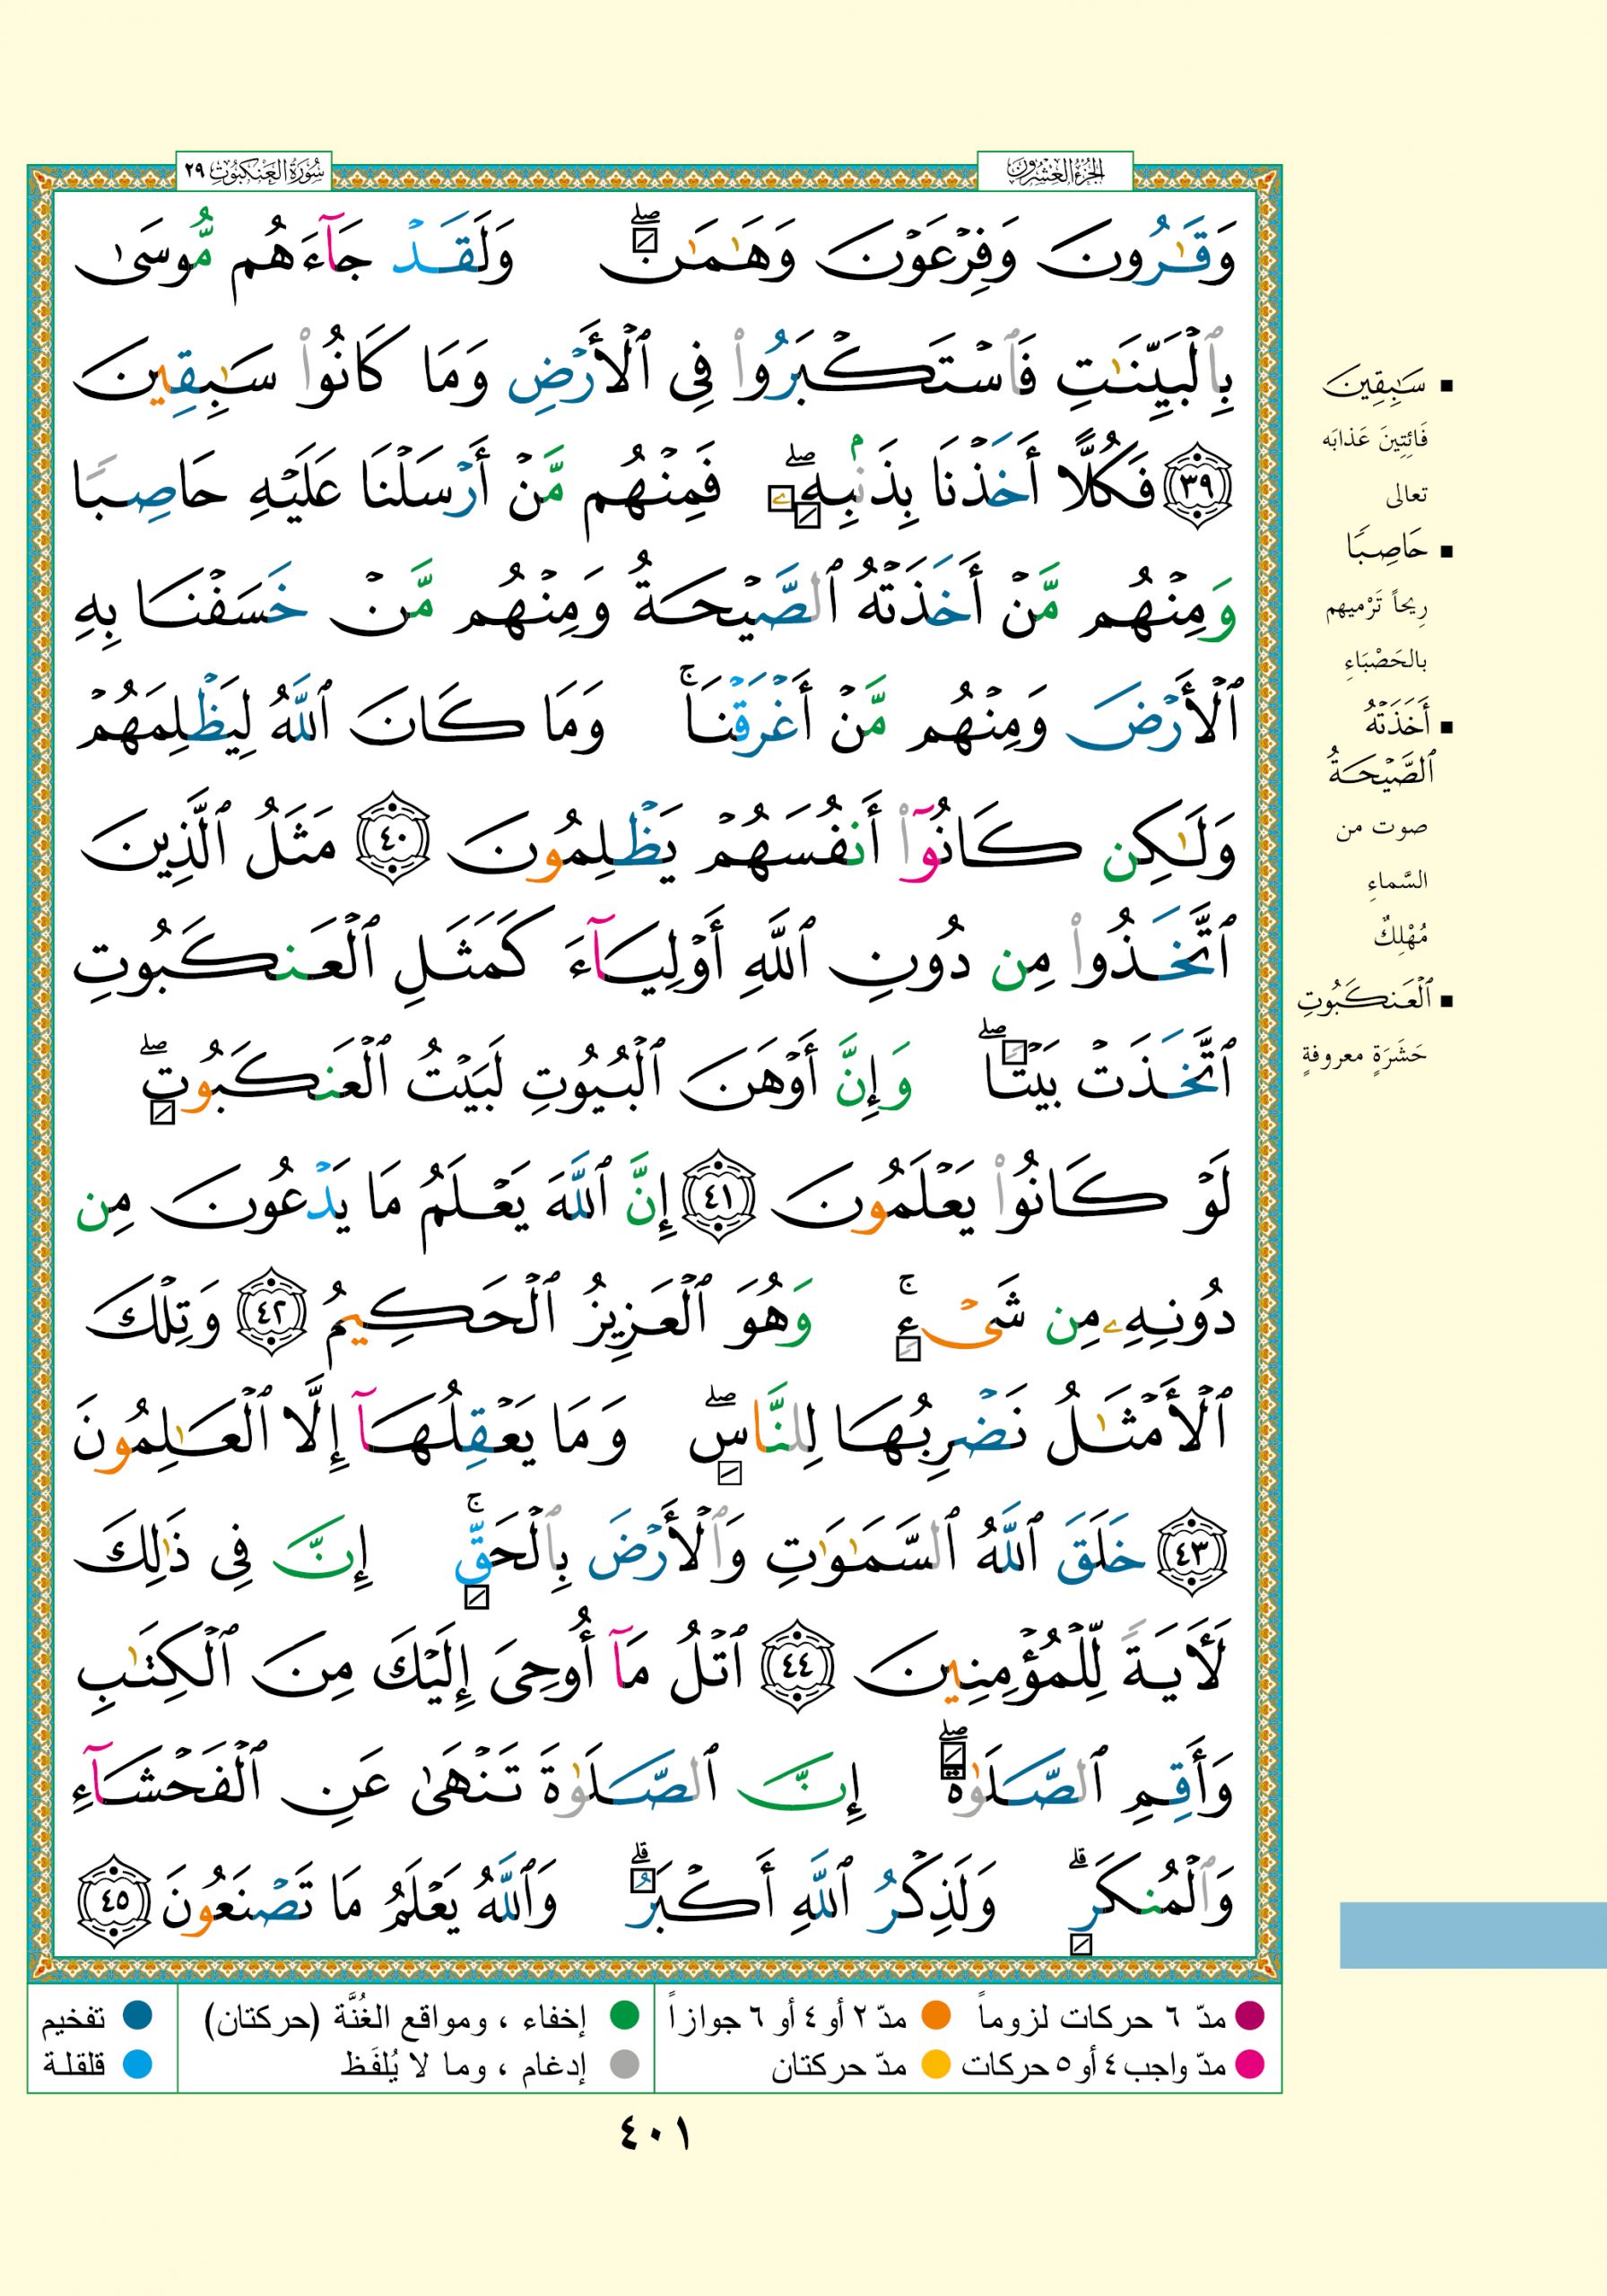 الجُزْءُ العِشْرُونَ
سُورَةُ العَنكَبُوتِ ٢٩
وَقَٰرُونَ وَفِرْعَوْنَ وَهَٰمَٰنَۖ وَلَقَدْ جَآءَهُم مُّوسَىٰ
بِٱلْبَيِّنَٰتِ فَٱسْتَكْبَرُوا۟ فِى ٱلْأَرْضِ وَمَا كَانُوا۟ سَٰبِقِينَ
٣٩ فَكُلًّا أَخَذْنَا بِذَنۢبِهِۦۖ فَمِنْهُم مَّنْ أَرْسَلْنَا عَلَيْهِ حَاصِبًا
وَمِنْهُم مَّنْ أَخَذَتْهُ ٱلصَّيْحَةُ وَمِنْهُم مَّنْ خَسَفْنَا بِهِ
ٱلْأَرْضَ وَمِنْهُم مَّنْ أَغْرَقْنَاۚ وَمَا كَانَ ٱللَّهُ لِيَظْلِمَهُمْ
وَلَٰكِن كَانُوٓا۟ أَنفُسَهُمْ يَظْلِمُونَ ٤٠ مَثَلُ ٱلَّذِينَ
ٱتَّخَذُوا۟ مِن دُونِ ٱللَّهِ أَوْلِيَآءَ كَمَثَلِ ٱلْعَنكَبُوتِ
ٱتَّخَذَتْ بَيْتًاۖ وَإِنَّ أَوْهَنَ ٱلْبُيُوتِ لَبَيْتُ ٱلْعَنكَبُوتِۖ
لَوْ كَانُوا۟ يَعْلَمُونَ ٤١ إِنَّ ٱللَّهَ يَعْلَمُ مَا يَدْعُونَ مِن
دُونِهِۦ مِن شَىْءٍۚ وَهُوَ ٱلْعَزِيزُ ٱلْحَكِيمُ ٤٢ وَتِلْكَ
ٱلْأَمْثَٰلُ نَضْرِبُهَا لِلنَّاسِۖ وَمَا يَعْقِلُهَآ إِلَّا ٱلْعَٰلِمُونَ
٤٣ خَلَقَ ٱللَّهُ ٱلسَّمَٰوَٰتِ وَٱلْأَرْضَ بِٱلْحَقِّۚ إِنَّ فِى ذَٰلِكَ
لَءَايَةً لِّلْمُؤْمِنِينَ ٤٤ ٱتْلُ مَآ أُوحِىَ إِلَيْكَ مِنَ ٱلْكِتَٰبِ
وَأَقِمِ ٱلصَّلَوٰةَۖ إِنَّ ٱلصَّلَوٰةَ تَنْهَىٰ عَنِ ٱلْفَحْشَآءِ
وَٱلْمُنكَرِۗ وَلَذِكْرُ ٱللَّهِ أَكْبَرُۗ وَٱللَّهُ يَعْلَمُ مَا تَصْنَعُونَ ٤٥
سَٰبِقِينَ
فَائِتِينَ عَذابَه
تعالى
حَاصِبًا
رِيحاً تَرْميهم
بالحَصْبَاءِ
أَخَذَتْهُ
ٱلصَّيْحَةُ
صوت من
السَّماءِ
مُهْلِكٌ
ٱلْعَنكَبُوتِ
حَشَرَةٍ معروفةٍ
مدّ ٦ حركات لزوماً
مدّ ٢ أو ٤ أو ٦ جوازاً
مدّ واجب ٤ أو ٥ حركات
مدّ حركتان
إخفاء ، ومواقع الغُنَّة (حركتان)
إدغام ، وما لا يُلفَظ
تفخيم
قلقلة
٤٠١